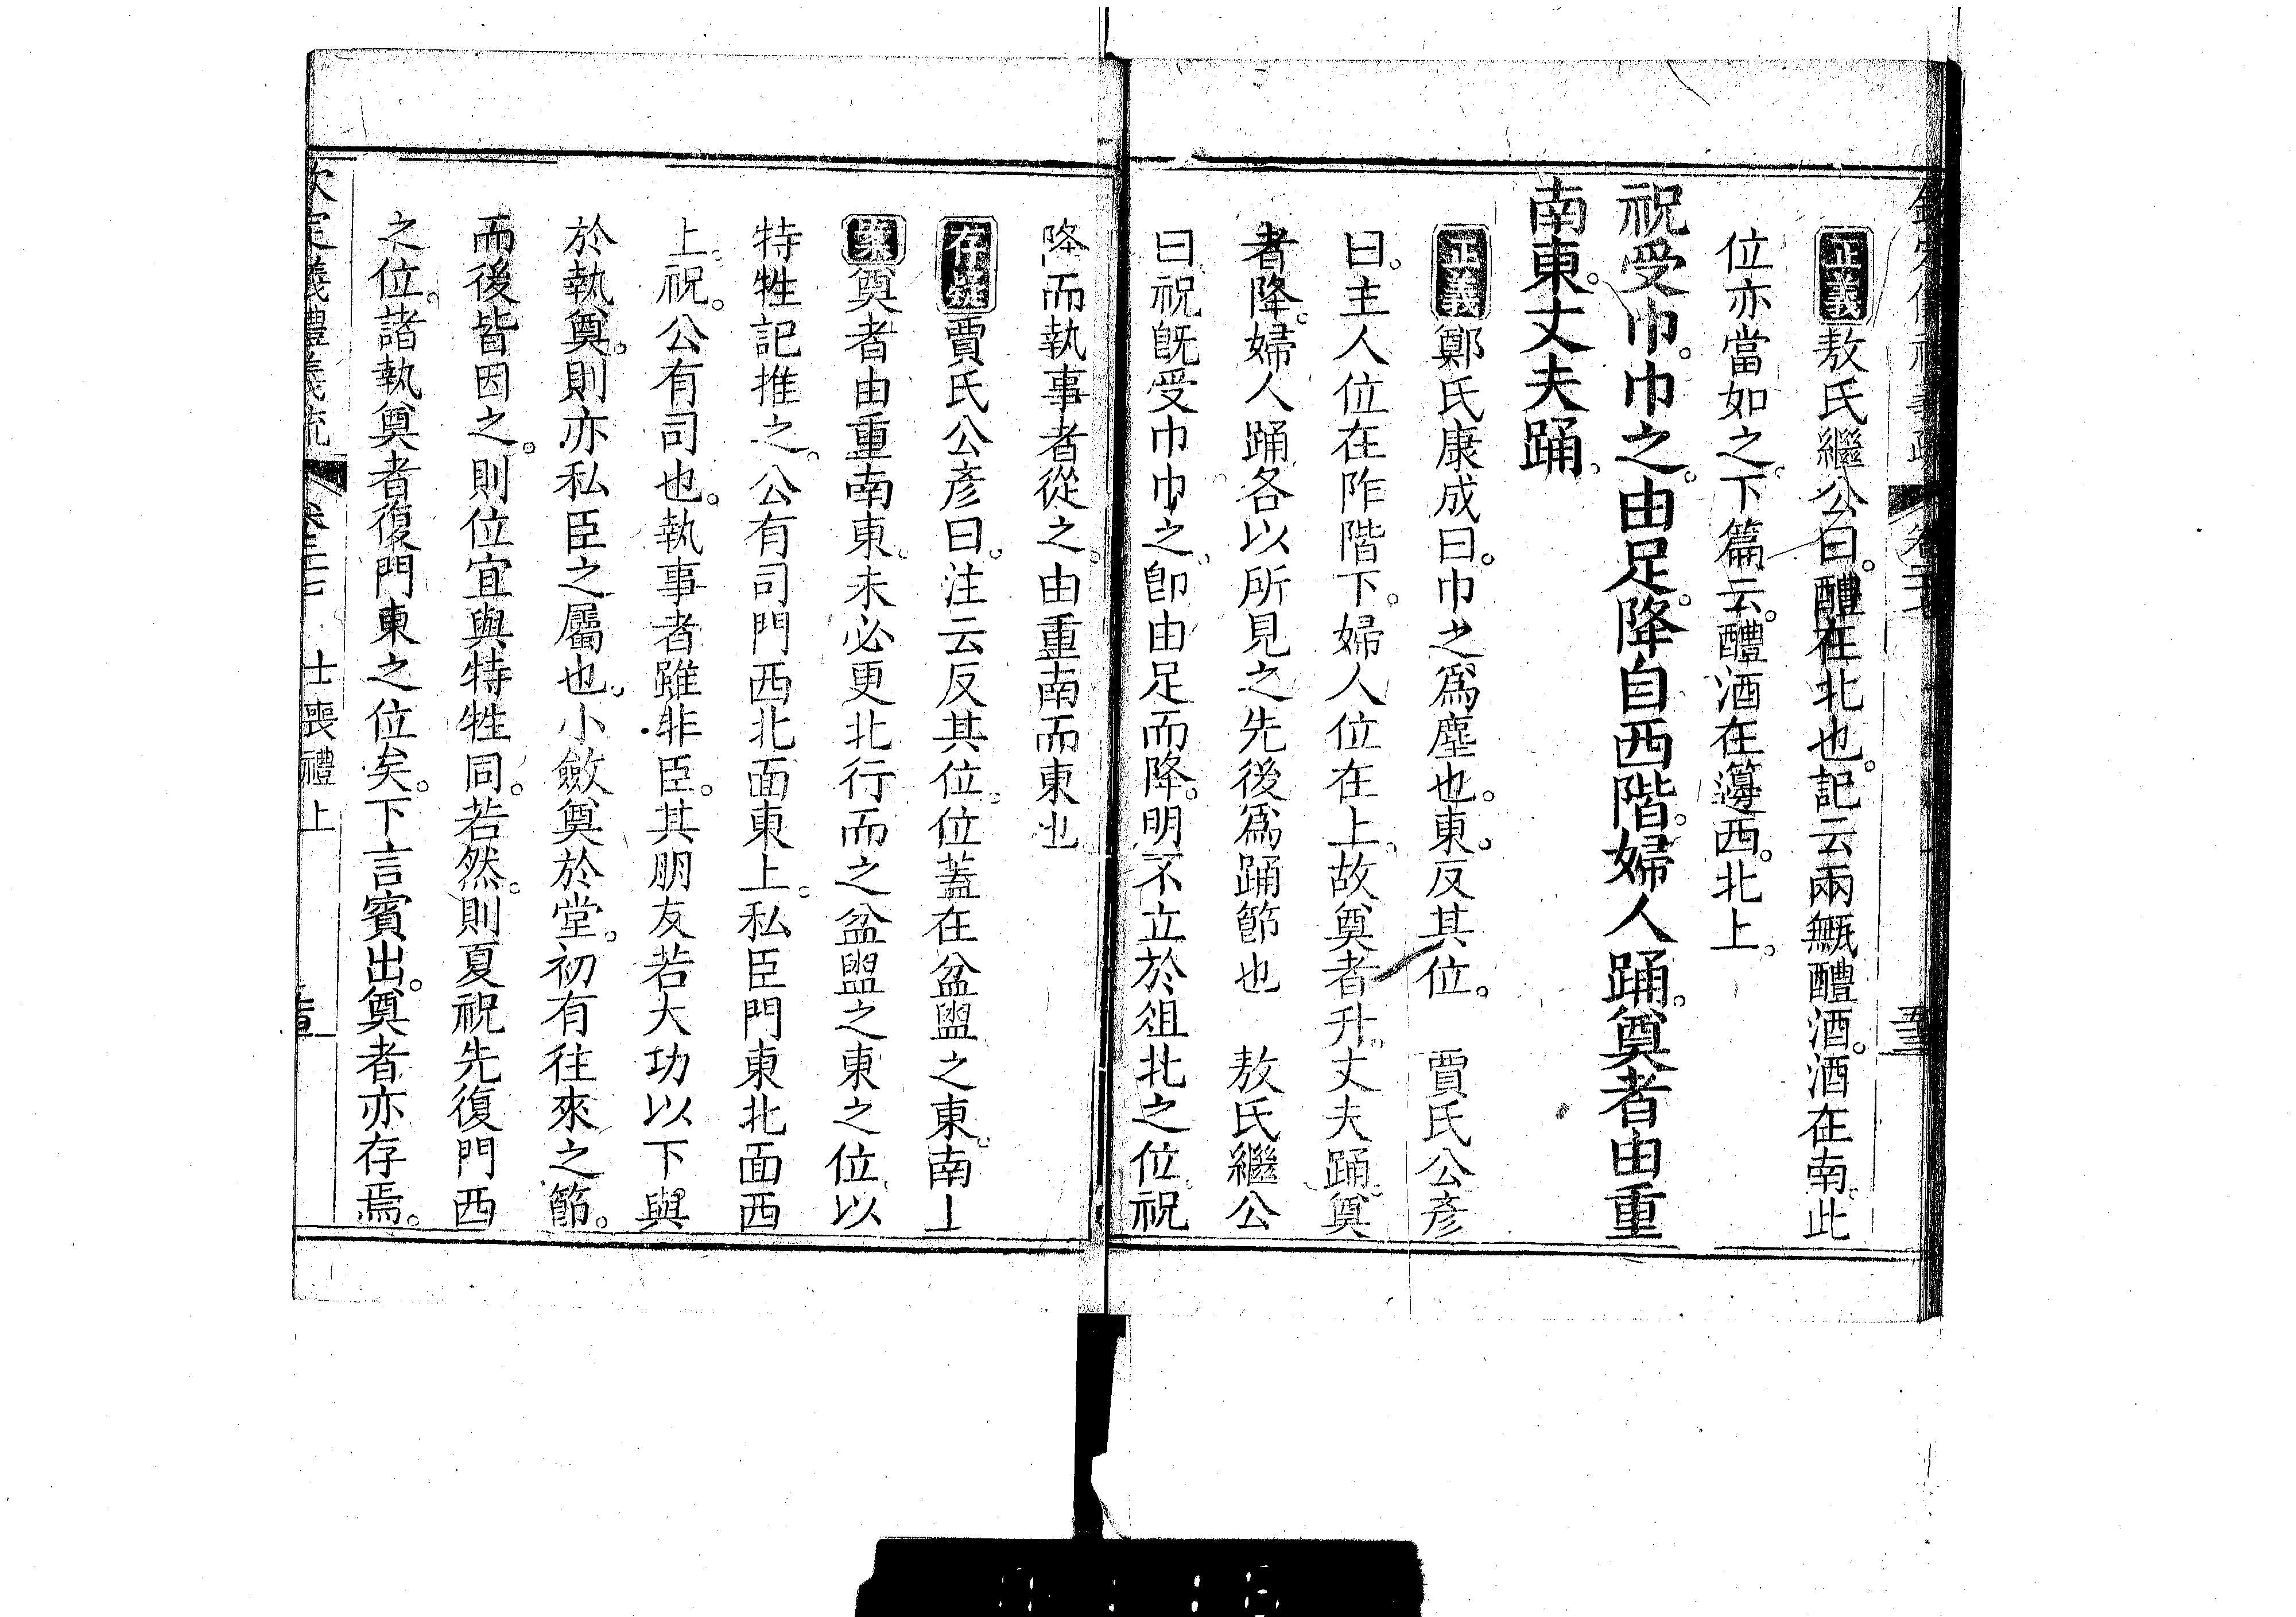 正義敖氏繼公曰。醴在北也。記云兩甒醴酒。酒在南。此
位亦當如之。下篇云。醴酒在籩西。北上。
祝受巾。巾之。由足。降自西階。婦人踊。奠者由重
南東。丈夫踊。
正義鄭氏康成曰。巾之爲塵也。東。反其位。 賈氏公彥
曰。主人位在阼階下。婦人位在上。故奠者升。丈夫踊。奠
者降。婦人踊。各以所見之先後爲踊節也 敖氏繼公
曰。祝旣受巾巾之。卽由足而降。明不立於俎北之位。祝
降而執事者從之。由重南而東也
存疑賈氏公彥曰。注云反其位。位蓋在盆盥之東。南上
案奠者由重南東。未必更北行而之盆盥之東之位。以
特牲記推之。公有司門西北面東上。私臣門東北面西
上。祝。公有司也。執事者雖非臣。其朋友若大功以下與
於執奠。則亦私臣之屬也。小斂奠於堂。初有往來之節。
而後皆因之。則位宜與特牲同。若然。則夏祝先復門西
之位。諸執奠者復門東之位矣。下言賓出。奠者亦存焉。
欽定義禮義疏 卷二十七 士喪禮上